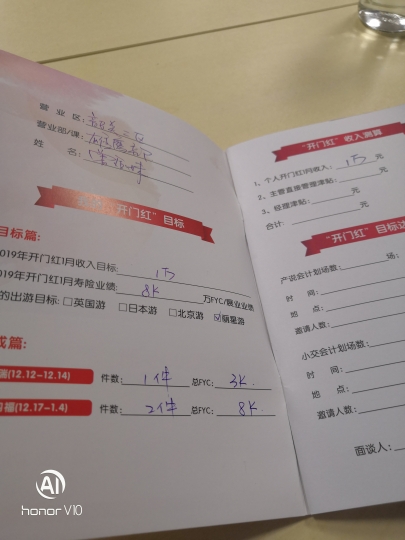 营 业 区:
营业部/课:
姓 名:
开门红”目标
目标篇:
2019年开门红1月收入目标: 1万
2019年开门红1月寿险业绩: 8K 万FYC/展业业绩
的出游目标: □英国游 □日本游 □北京游 ☑丽星游
成篇:
(12.12-12.14) 件数: 1件 总FYC: 3K.
福(12.17-1.4) 件数: 2件 总FYC: 8K
“开门红”收入测算
1、个人开门红1月收入: 1万 元
2、主管直接管理津贴: 元
3、经理津贴: 元
合计: 元
“开门红”目标达
产说会计划场数: 场;
时 间:
地 点:
邀请人数:
小交会计划场数:
时 间:
地 点:
邀请人数:
面谈人:
AI
honor V10